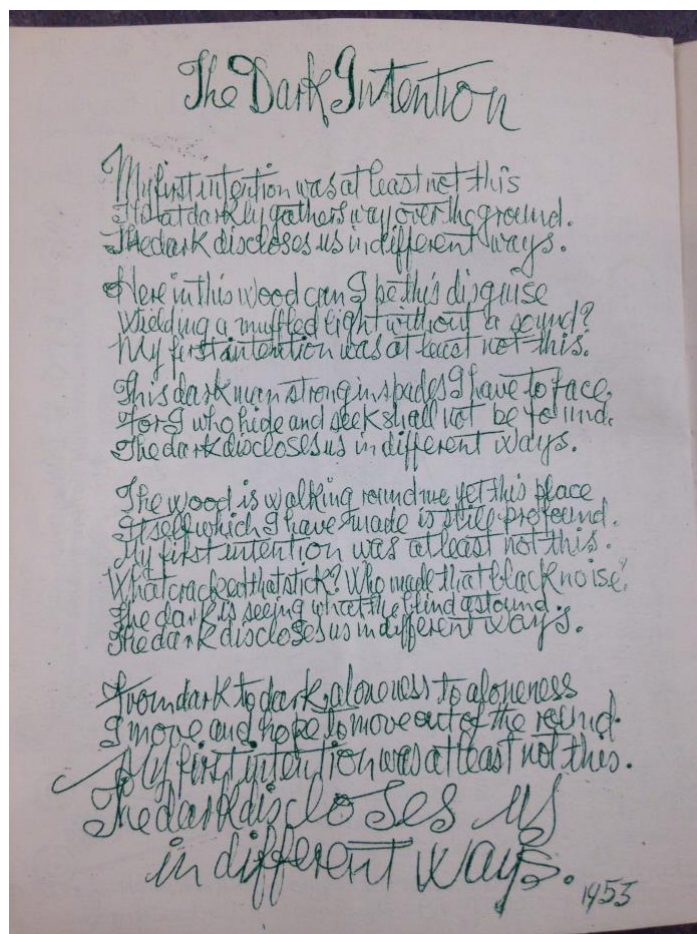 The Dark Intention
My first intention was at least not this
That darkly gathers way over the ground.
The dark discloses us in different ways.
Here in this wood can I be this disguise
Wielding a muffled light without a sound?
My first intention was at least not this.
This dark man strong in spades I have to face,
For I who hide and seek shall not be found.
The dark discloses us in different ways.
The wood is walking round me yet this place
Itself which I have made is still profound.
My first intention was at least not this.
What cracked that stick? Who made that black noise?
The dark is seeing what the blind astound.
The dark discloses us in different ways.
From dark to dark, aloneness to aloneness
I move and hope to move out of the round.
My first intention was at least not this.
The dark discloses us
in different ways.
1955